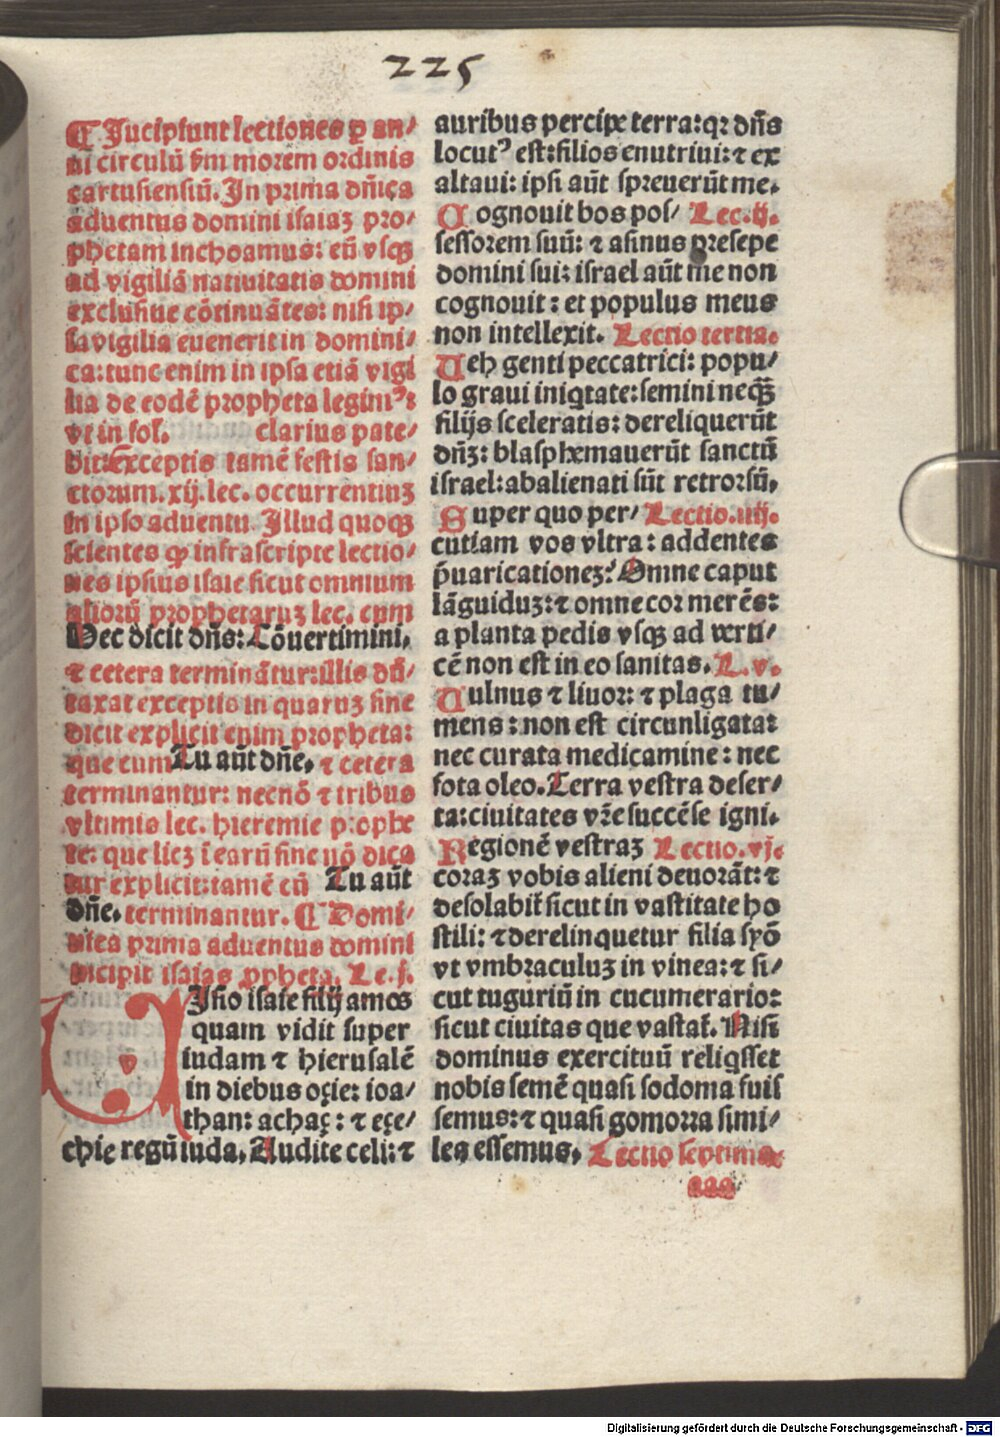 225
¶ Incipiunt lectiones ꝑ an/
ni circulū ẜm morem ordinis
cartusiensiū. In prima dn̄ica
aduentus domini isaiaʒ pro/
phetam inchoamus: eū vsqꝫ
ad vigiliā natiuitatis domini
exclusiue cōtinuātes: nisi ip/
sa vigilia euenerit in domini/
ca: tunc enim in ipsa etiā vigi
lia de eodē propheta legim⁹:
vt in fol. clarius pate/
bit: Exceptis tamē festis san/
ctorum .xij. lec. occurrentiuʒ
in ipso aduentu. Illud quoqꝫ
scientes ꝙ infrascripte lectio/
nes ipsius isaie sicut omnium
aliorū prophetaruʒ lec. cum
Hec dicit dn̄s: Cōuertimini.
⁊ cetera terminātur: illis dū/
taxat exceptis in quaruʒ fine
dicit explicit enim propheta:
que cum Tu aūt dn̄e. ⁊ cetera
terminantur: necnō ⁊ tribus
vltimis lec. hieremie prophe
te: que licʒ ī earū fine nō dica
tur explicit: tamē cū Tu aūt
dn̄e. terminantur. ¶ Domi/
nica prima aduentus domini
incipit isaias ꝓpheta. Le. j.
VIsio isaie filij amos
quam vidit super
iudam ⁊ hierusalē
in diebus oȝie: ioa/
than: achaȝ: ⁊ eȝe/
chie regū iuda. Audite celi: ⁊
auribus percipe terra: qꝛ dn̄s
locut⁹ est: filios enutriui: ⁊ ex
altaui: ipsi aūt spreuerūt me.
Cognouit bos pos/ Lec. ij.
sessorem suū: ⁊ asinus presepe
domini sui: israel aūt me non
cognouit: et populus meus
non intellexit. Lectio tertia.
Ueh genti peccatrici: popu/
lo graui iniqtate: semini neqꝫ
filijs sceleratis: dereliquerūt
dn̄ʒ: blasphemauerūt sanctū
israel: abalienati sūt retrorsū.
Super quo per/ Lectio. iiij.
cutiam vos vltra: addentes
p̄uaricationeʒ? Omne caput
lāguiduʒ: ⁊ omne cor merēs:
a planta pedis vsqꝫ ad verti/
cē non est in eo sanitas. L. v.
Uulnus ⁊ liuor: ⁊ plaga tu/
mens: non est circunligata:
nec curata medicamine: nec
fota oleo. Terra vestra deser/
ta: ciuitates vr̄e succēse igni.
Regionē vestraʒ Lectio. vj.
coraʒ vobis alieni deuorāt: ⁊
desolabit̄ sicut in vastitate ho
stili: ⁊ derelinquetur filia syō
vt vmbraculuʒ in vinea: ⁊ si/
cut tuguriū in cucumerario:
sicut ciuitas que vastat̄. Nisi
dominus exercituū reliqsset
nobis semē quasi sodoma fuis
semus: ⁊ quasi gomorra simi/
les essemus. Lectio septima
aaa
Digitalisierung gefördert durch die Deutsche Forschungsgemeinschaft - DFG